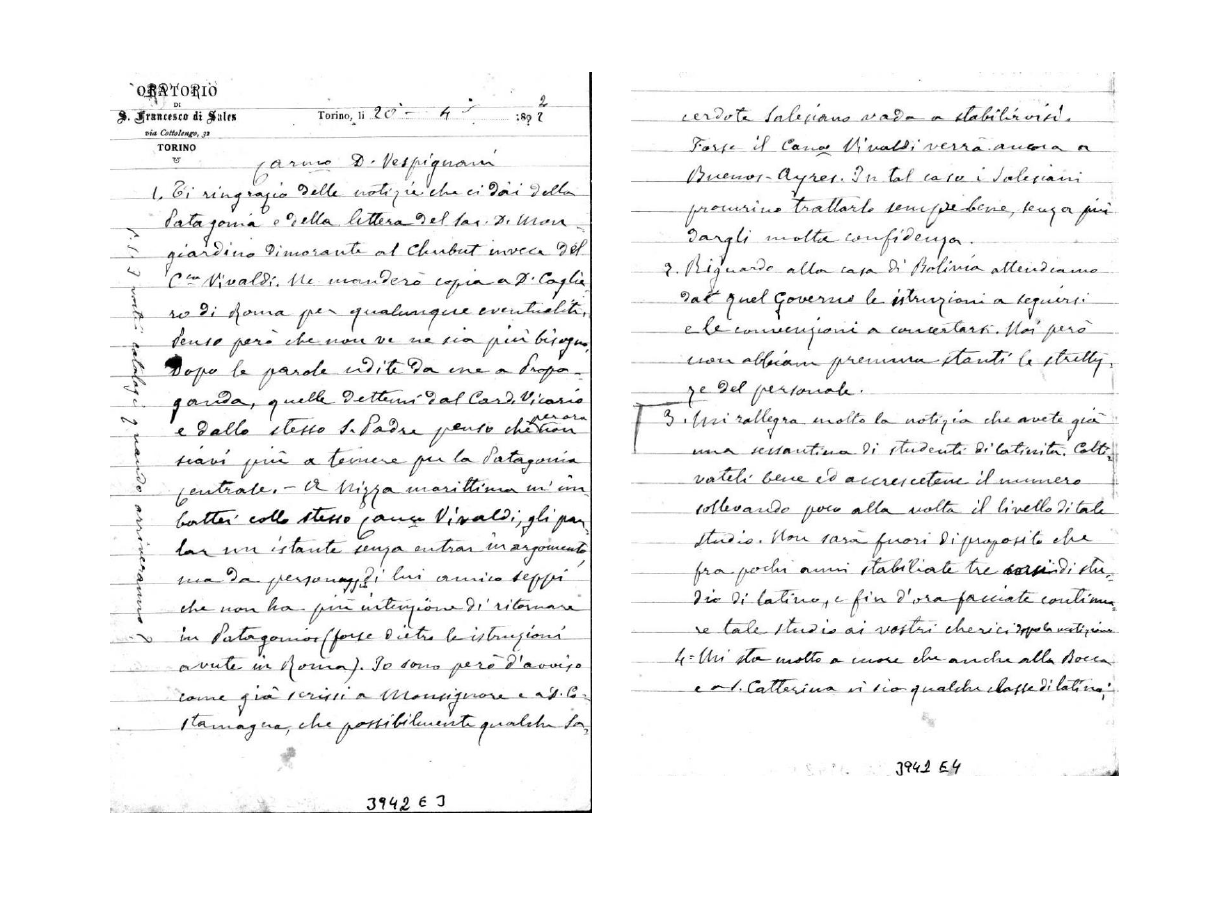 ORATORIO
DI
S. Francesco di Sales
via Cottolengo, 32
TORINO
Torino, li 20 - 4 1892
Carmo D. Vespignani
1. Ti ringrazio delle notizie che ci dai della
Patagonia e della lettera del Sac. D. Mon
giardino dimorante al Chubut invece del
Cco Vivaldi. Ne manderò copia a D. Caglie
ro di Roma per qualunque eventualità,
Penso però che non ve ne sia più bisogno,
Dopo le parole udite da me a Propa-
ganda, quelle dettemi dal Card. Vicario
e dallo stesso S. Padre penso che per ora non
siavi più a temere per la Patagonia
Centrale. - A Nizza marittima m'im
battei collo stesso Canco Vivaldi, gli par
lar un istante senza entrar in argomento,
ma da personaggi di lui amico seppi
che non ha più intenzione di ritornare
in Patagonia (forse dietro le istruzioni
avute in Roma). Io sono però d'avviso
come già scrissi a Monsignore e a D. Co-
stamagna, che possibilmente qualche Sa,
P.S. I vostri catalogi quando arriveranno?
3942 E 3
cerdote Salesiano vada a stabilirvisi.
Forse il Canco Vivaldi verrà ancora a
Buenos-Ayres. In tal caso i Salesiani
procurino trattarlo sempre bene, senza più
dargli molta confidenza.
2. Riguardo alla casa di Bolivia attendiamo
dal quel Governo le istruzioni a seguirsi
e le convenzioni a concertarsi. Noi però
non abbiam premura stanti le strettez,
ze del personale.
3. Mi rallegra molto la notizia che avete già
una sessantina di studenti di latinità. Colti,
vateli bene ed accrescetene il numero
sollevando poco alla volta il livello di tale
studio. Non sarà fuori di proposito che
fra pochi anni stabiliate tre corsi di stu,
dio di latino, e fin d'ora facciate continua,
re tale studio ai vostri cherici dopo la vestizione
4= Mi sta molto a cuore che anche alla Bocca
e a S. Catterina vi sia qualche classe di latino;
3942 E4